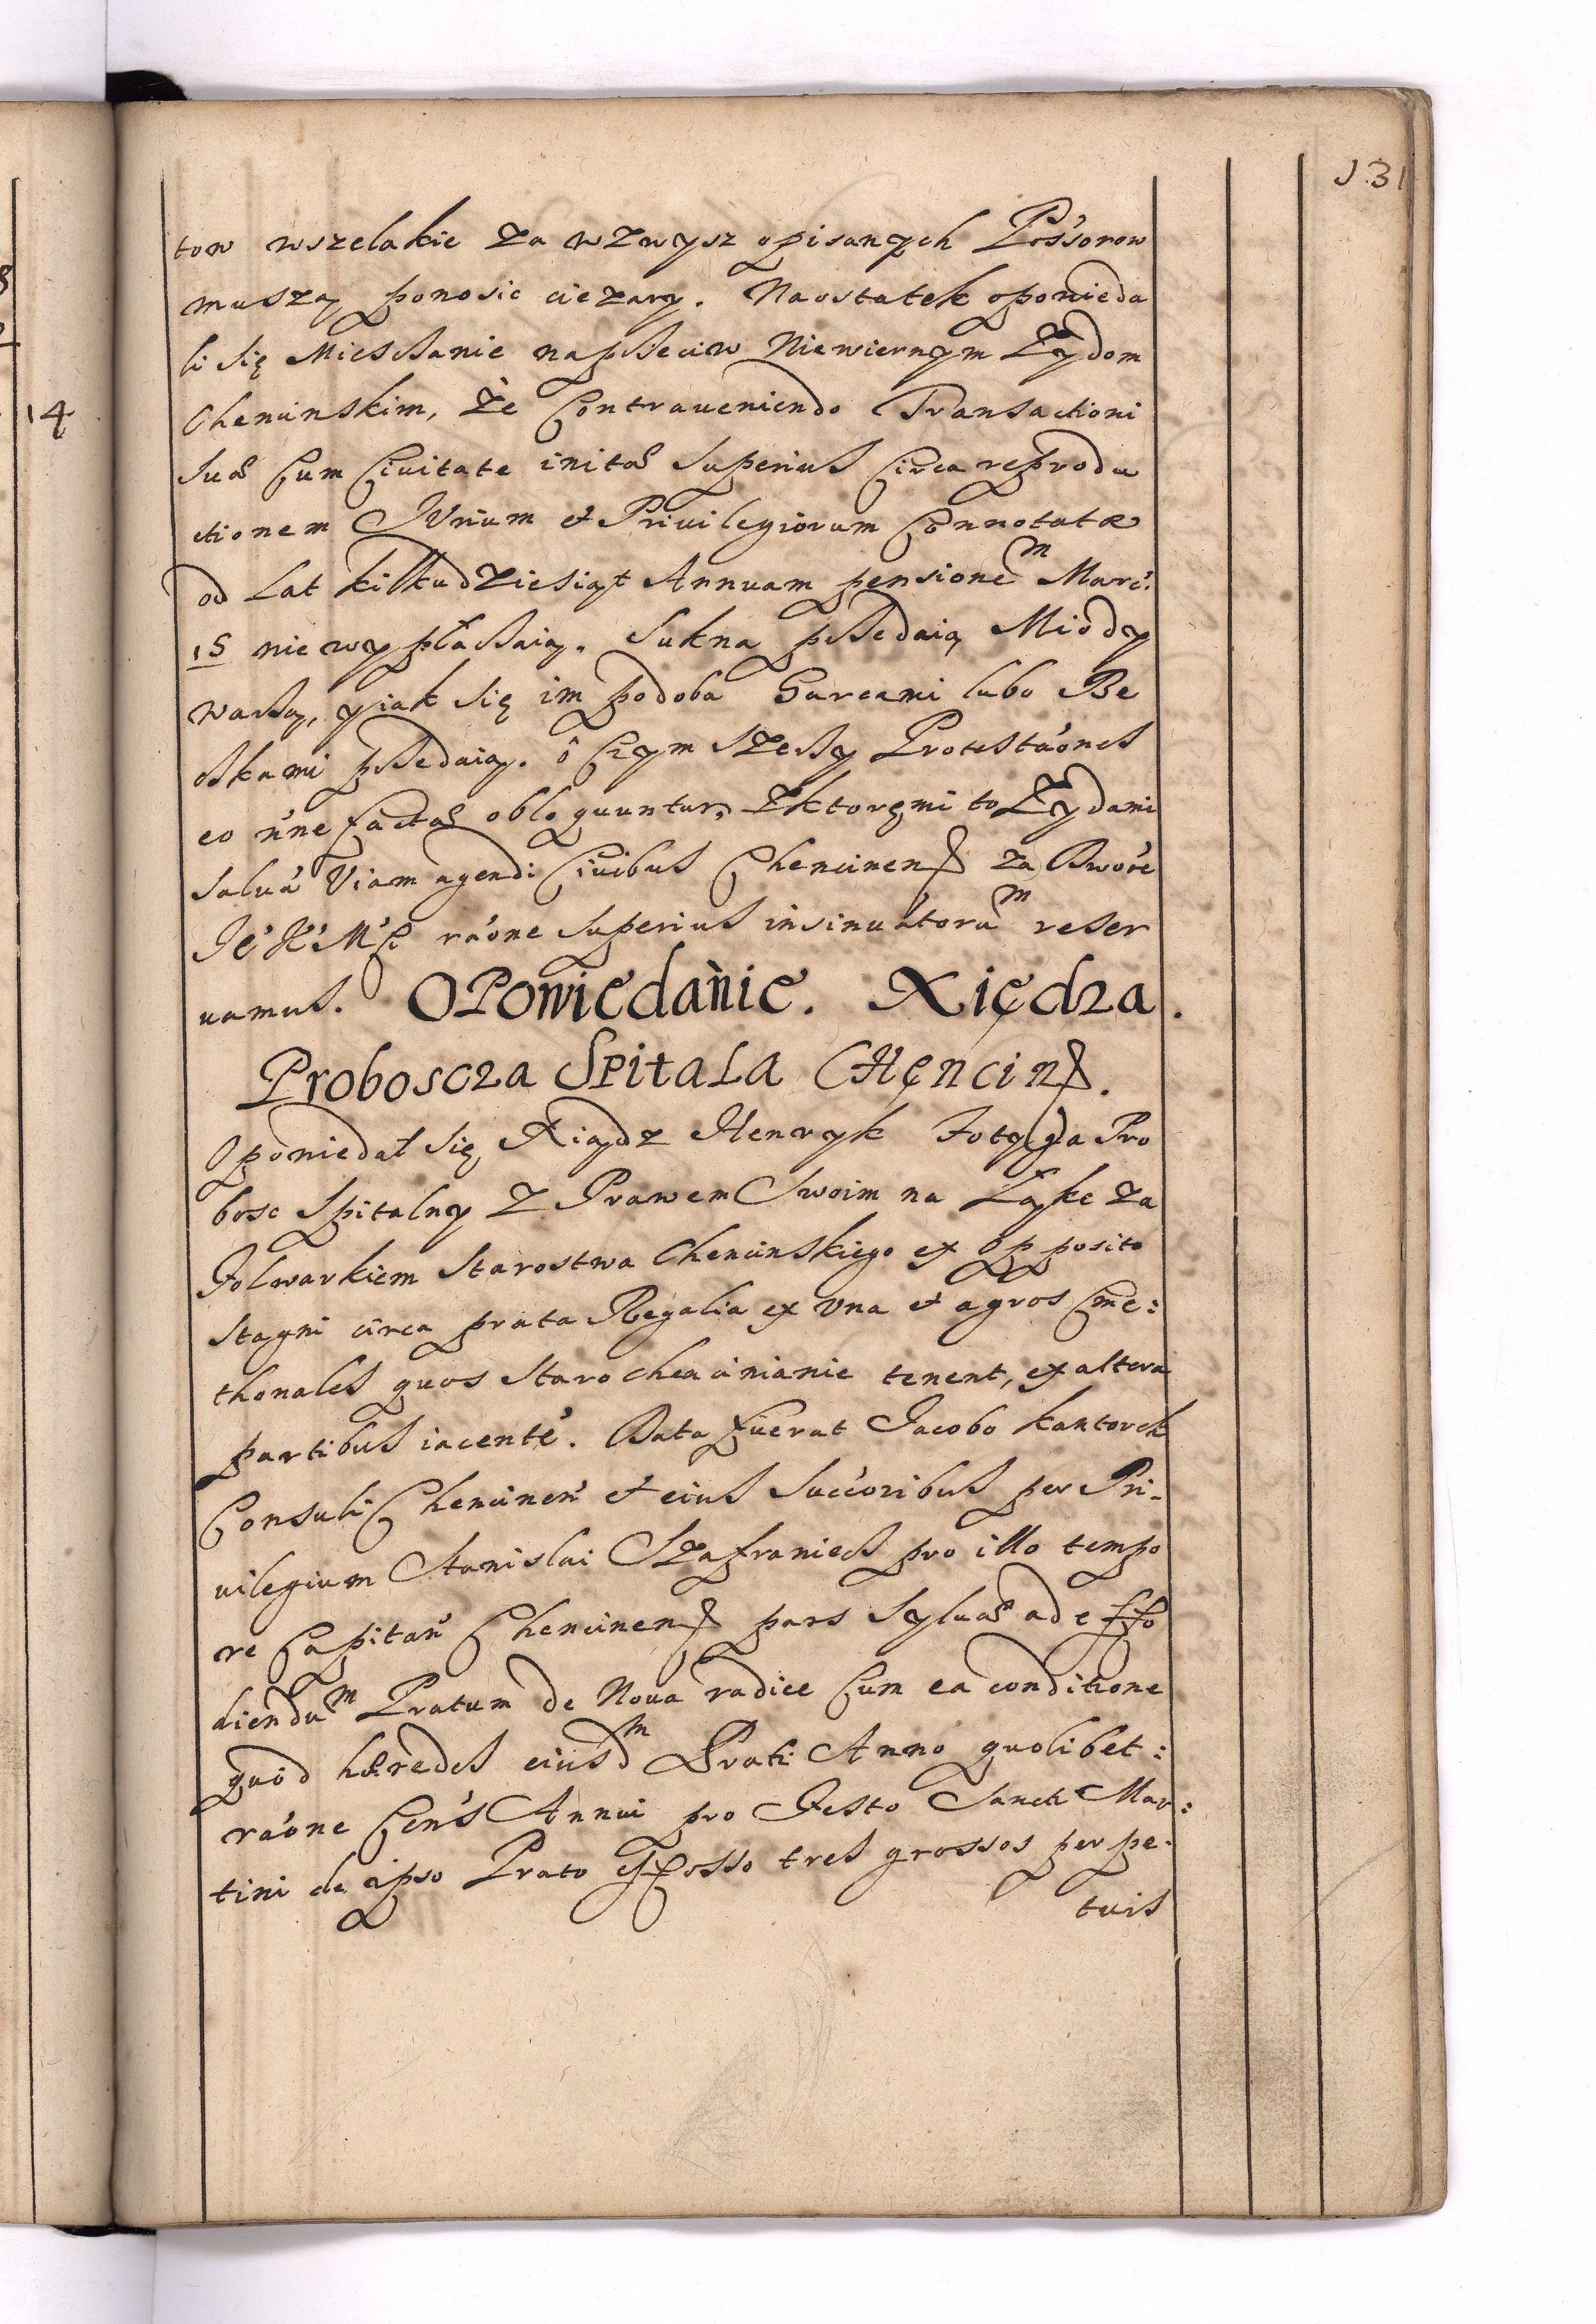 131
tow wszelakie za wzwysz opisanych Pośsorow
muszą ponosic ciezary. Naostatek opowieda
li się Mieszczanie naprzeciw Niewiernym Zydom
Chencinskim, że Contraueniendo Transactioni
suæ Cum Ciuitate initæ superius Circa reprodu
ctionem Jurium et Priuilegiorum Connotatæ
od Lat kilkudziesiąt Annuam pensionem Marc:
15 nie wypłaszaią. Sukna przedaią Miody
warzą, y iak się im podoba Garcami lubo Be
czkami przedaią. ô Czym szerzy Protestaones
eo n'ne factæ obloquuntur, z ktoremi to Zydami
salua Viam agendi Ciuibus Chencinen za Dwore
Je' K' M'C raone superius insinuatorum reser
uamus. OPowiedanie. Xiędza.
Proboscza SPitaLa CHęncin.
Opowiedał się Xiądz Henryk Fotyga Pro
bosc Spitalny z Prawem Swoim na Łąke za
Folwarkiem Starostwa Chencinskiego ex Opposito
stagni circa prata Regalia ex vna et agros Cme:
thonales quos Starochencinianie tenent, ex altera
partibus iacente. Data fuerat Jacobo Kantorek
Consuli Chencinen et eius Succoribus per Pri-
uilegium Stanislai Szafraniech pro illo tempo
re Capitan Chencinen pars syluæ ad effo
diendum Pratum de Noua radice Cum ea conditione
quod hæredes eiusdm Prati Anno quolibet:
raone Cens Annui pro Festo Sancti Mar:
tini de ipso Prato effosso tres grossos perpe-
tuis
14